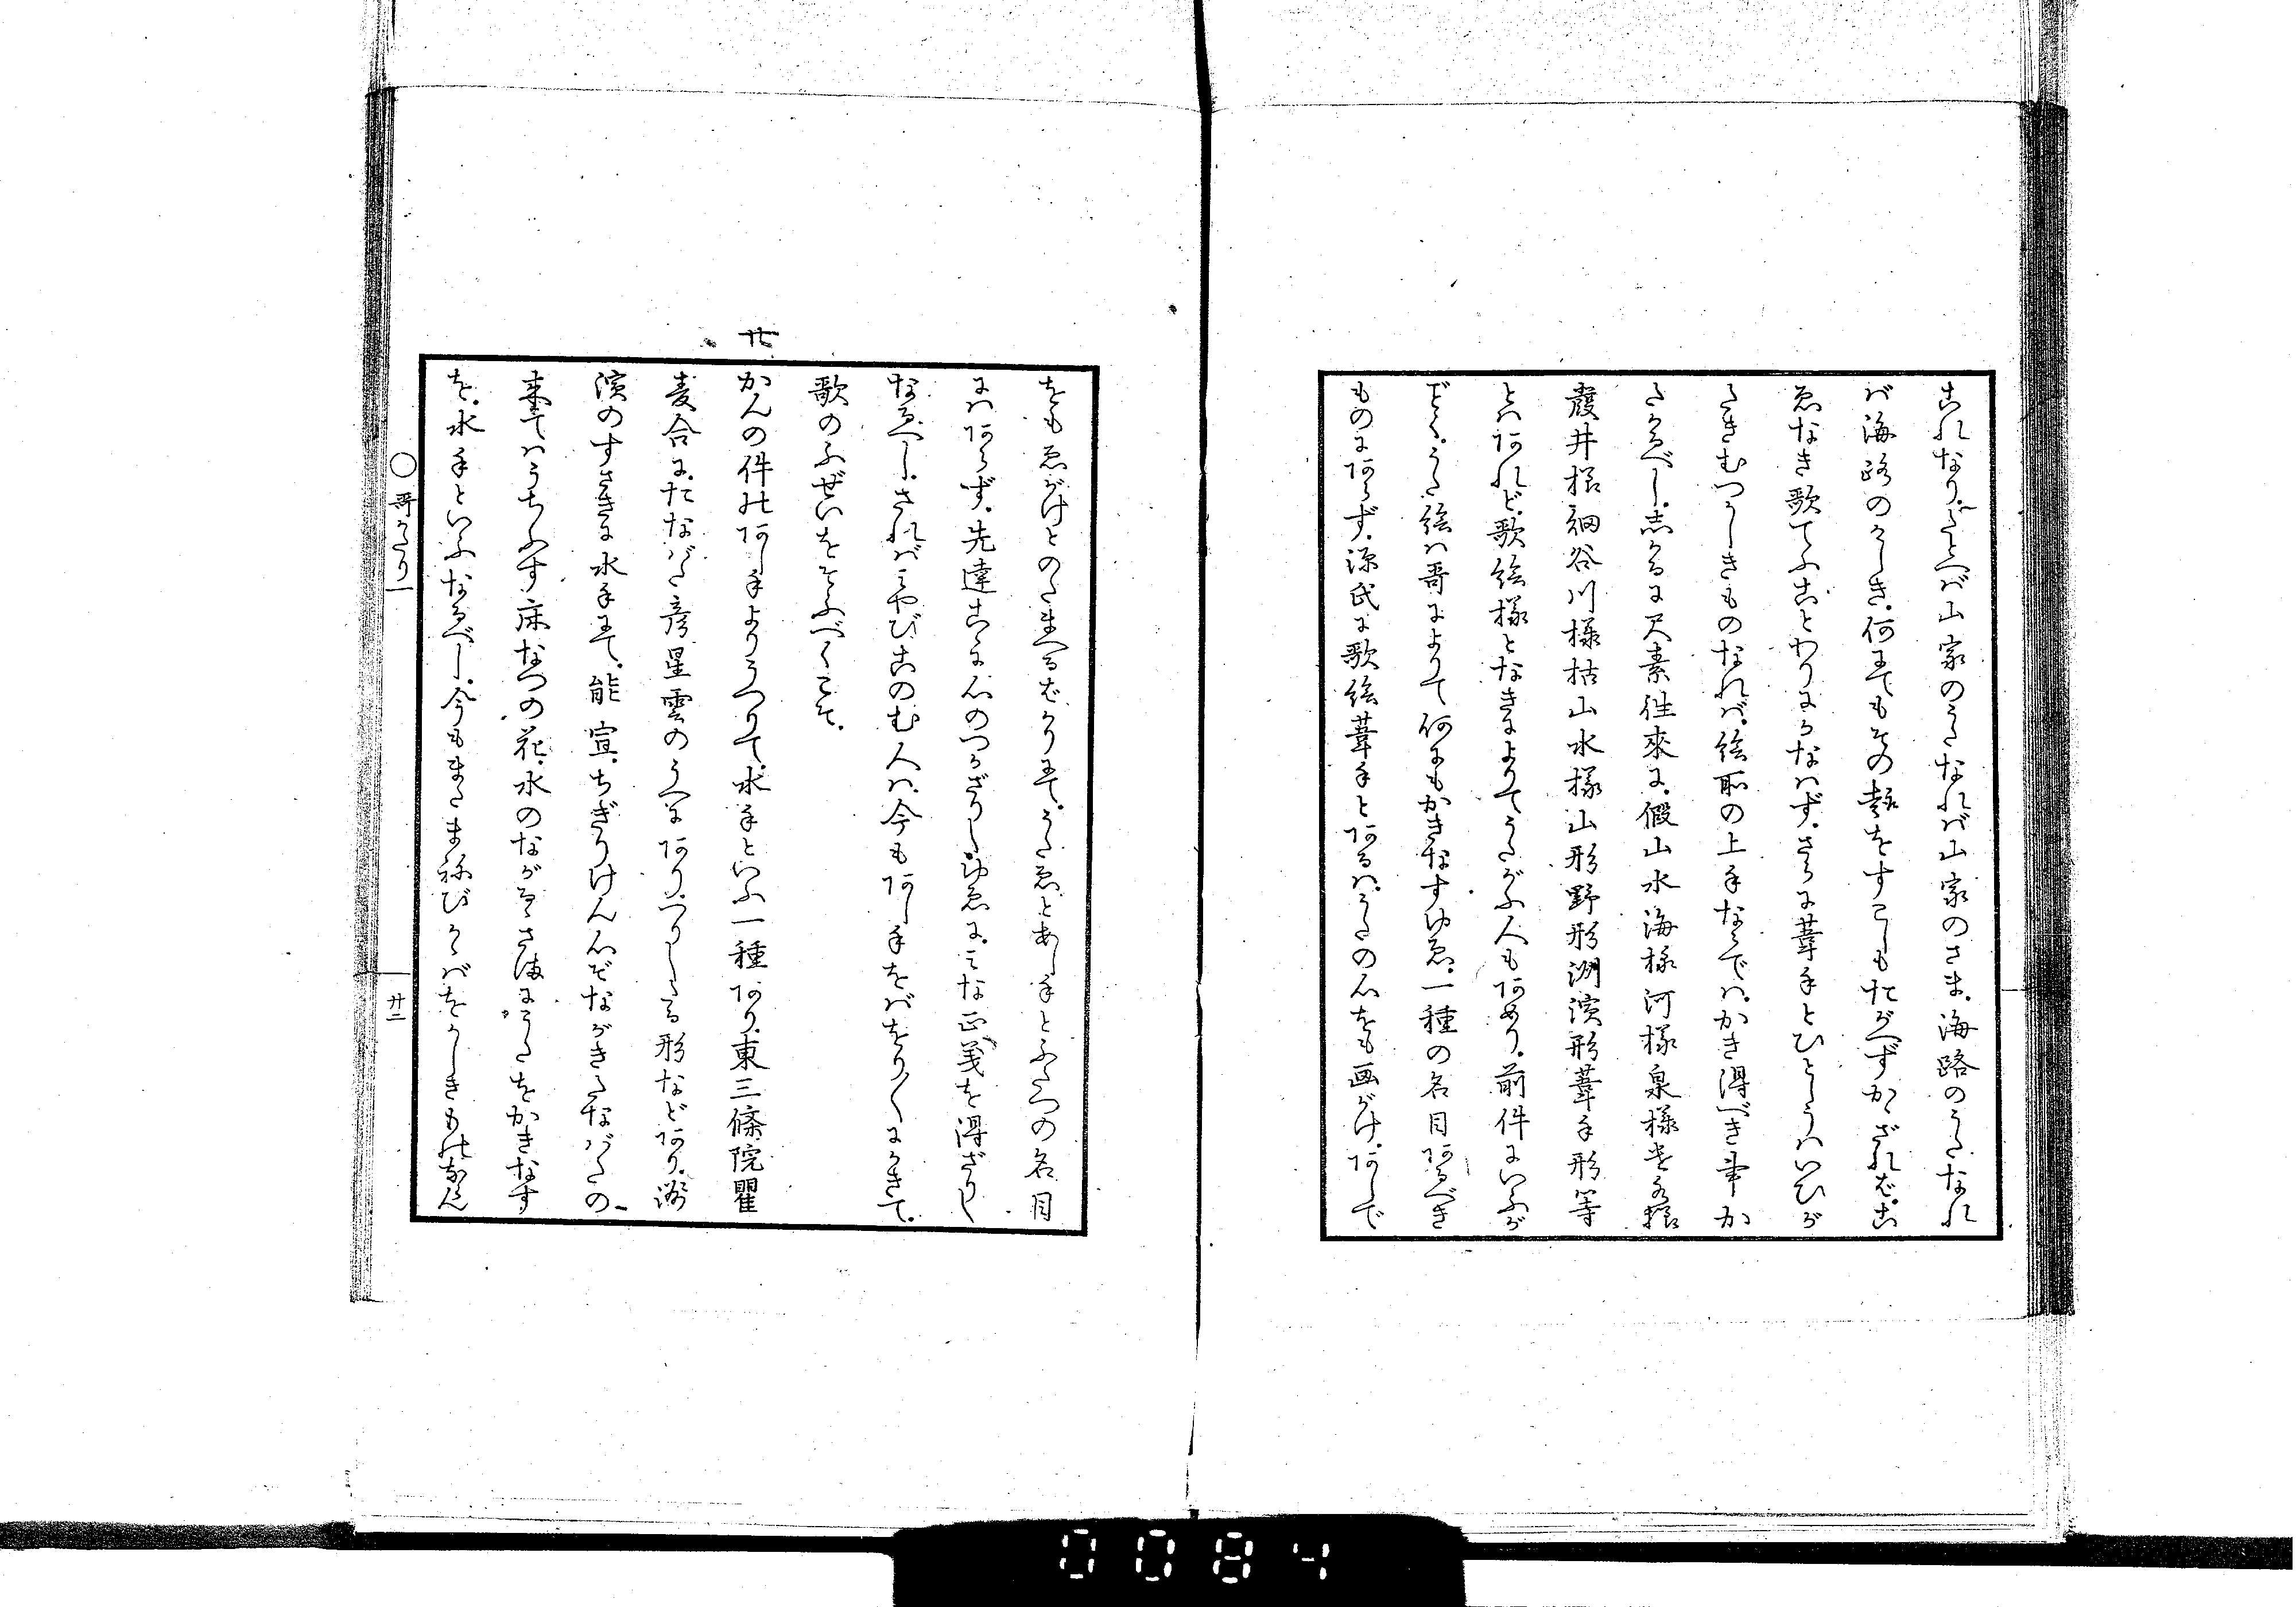 これなり。たとへバ山家のうたなれバ山家のさま。海路のうたなれ
バ海路のけしき。何にてもその趣をすこしもたがへずかゝざれば。こ
ゑなき歌てふことわりにかなハず。さらに葦手とひとしうハいひが
たきむつかしきものなれバ。絵所の上手ならでハ。かき得べき事か
たかるべし。しかるに尺素往來に。假山水海様河様泉様遣水様
霞井様細谷川様枯山水様山形野形洲濱形葦手形等
とハあれど。歌絵様となきによりてうたがふ人もあめり。前件にいふが
ごとく。うた絵ハ哥によりて何にもかきなすゆゑ。一種の名目あるべき
ものにあらず。源氏に歌絵葦手とあるハ。うたの心をも画がけ。あしで
をもゑがけとのたまへるばかりにて。うたゑとあし手とふたつの名目
にハあらず。先達こゝに心のつかざりしゆゑに。みな正義を得ざりし
なるべし。されバみやびこのむ人ハ。今もあし手をバをり〱にかきて。
歌のふぜいをそふべくこそ。
廿
かんの件のあし手よりうつりて。水手といふ一種あり。東三條院瞿
麦合に。たなバた彦星雲のうへにあり。つりしたる形などあり。洲
濱のすさきに水手にて。能宣。ちぎりけん心ぞながきたなバたの
来てハうちふす床なつの花。水のながるゝさまにうたをかきなす
を。水手といふなるべし。今もまたまねびかゝバをかしきものならん
○哥がたり一
廿二
0084